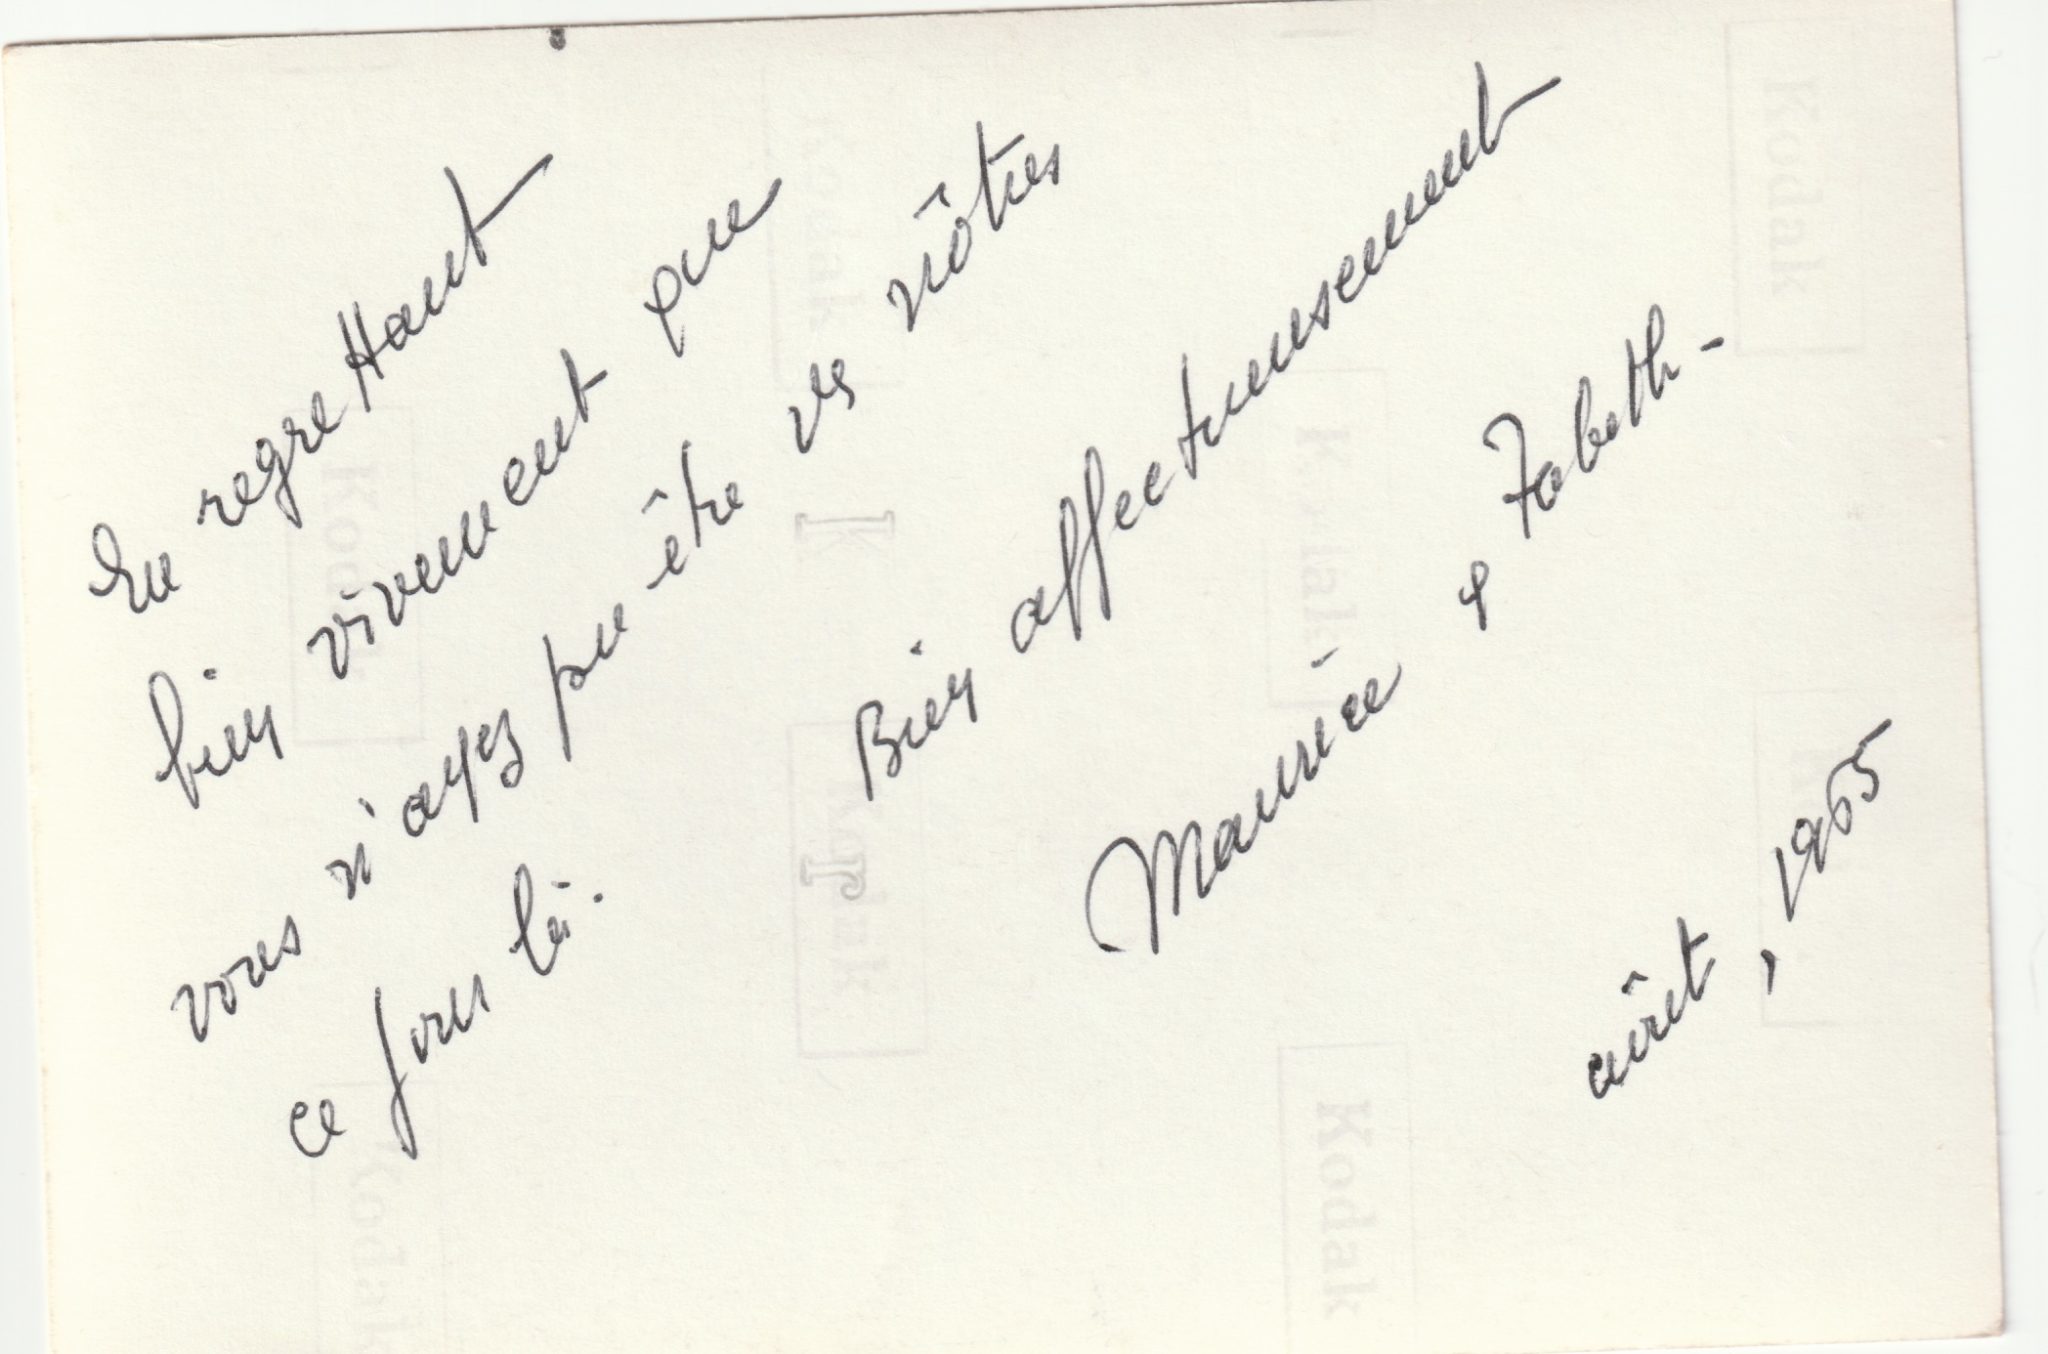 En regrettant
bien vivement que
vous n'ayez pu être des nôtres
ce jour là.
Bien affectueusement
Maurice & Zabeth-
août, 1965
Kodak
Kodak
Kodak
Kodak
Kodak
Kodak